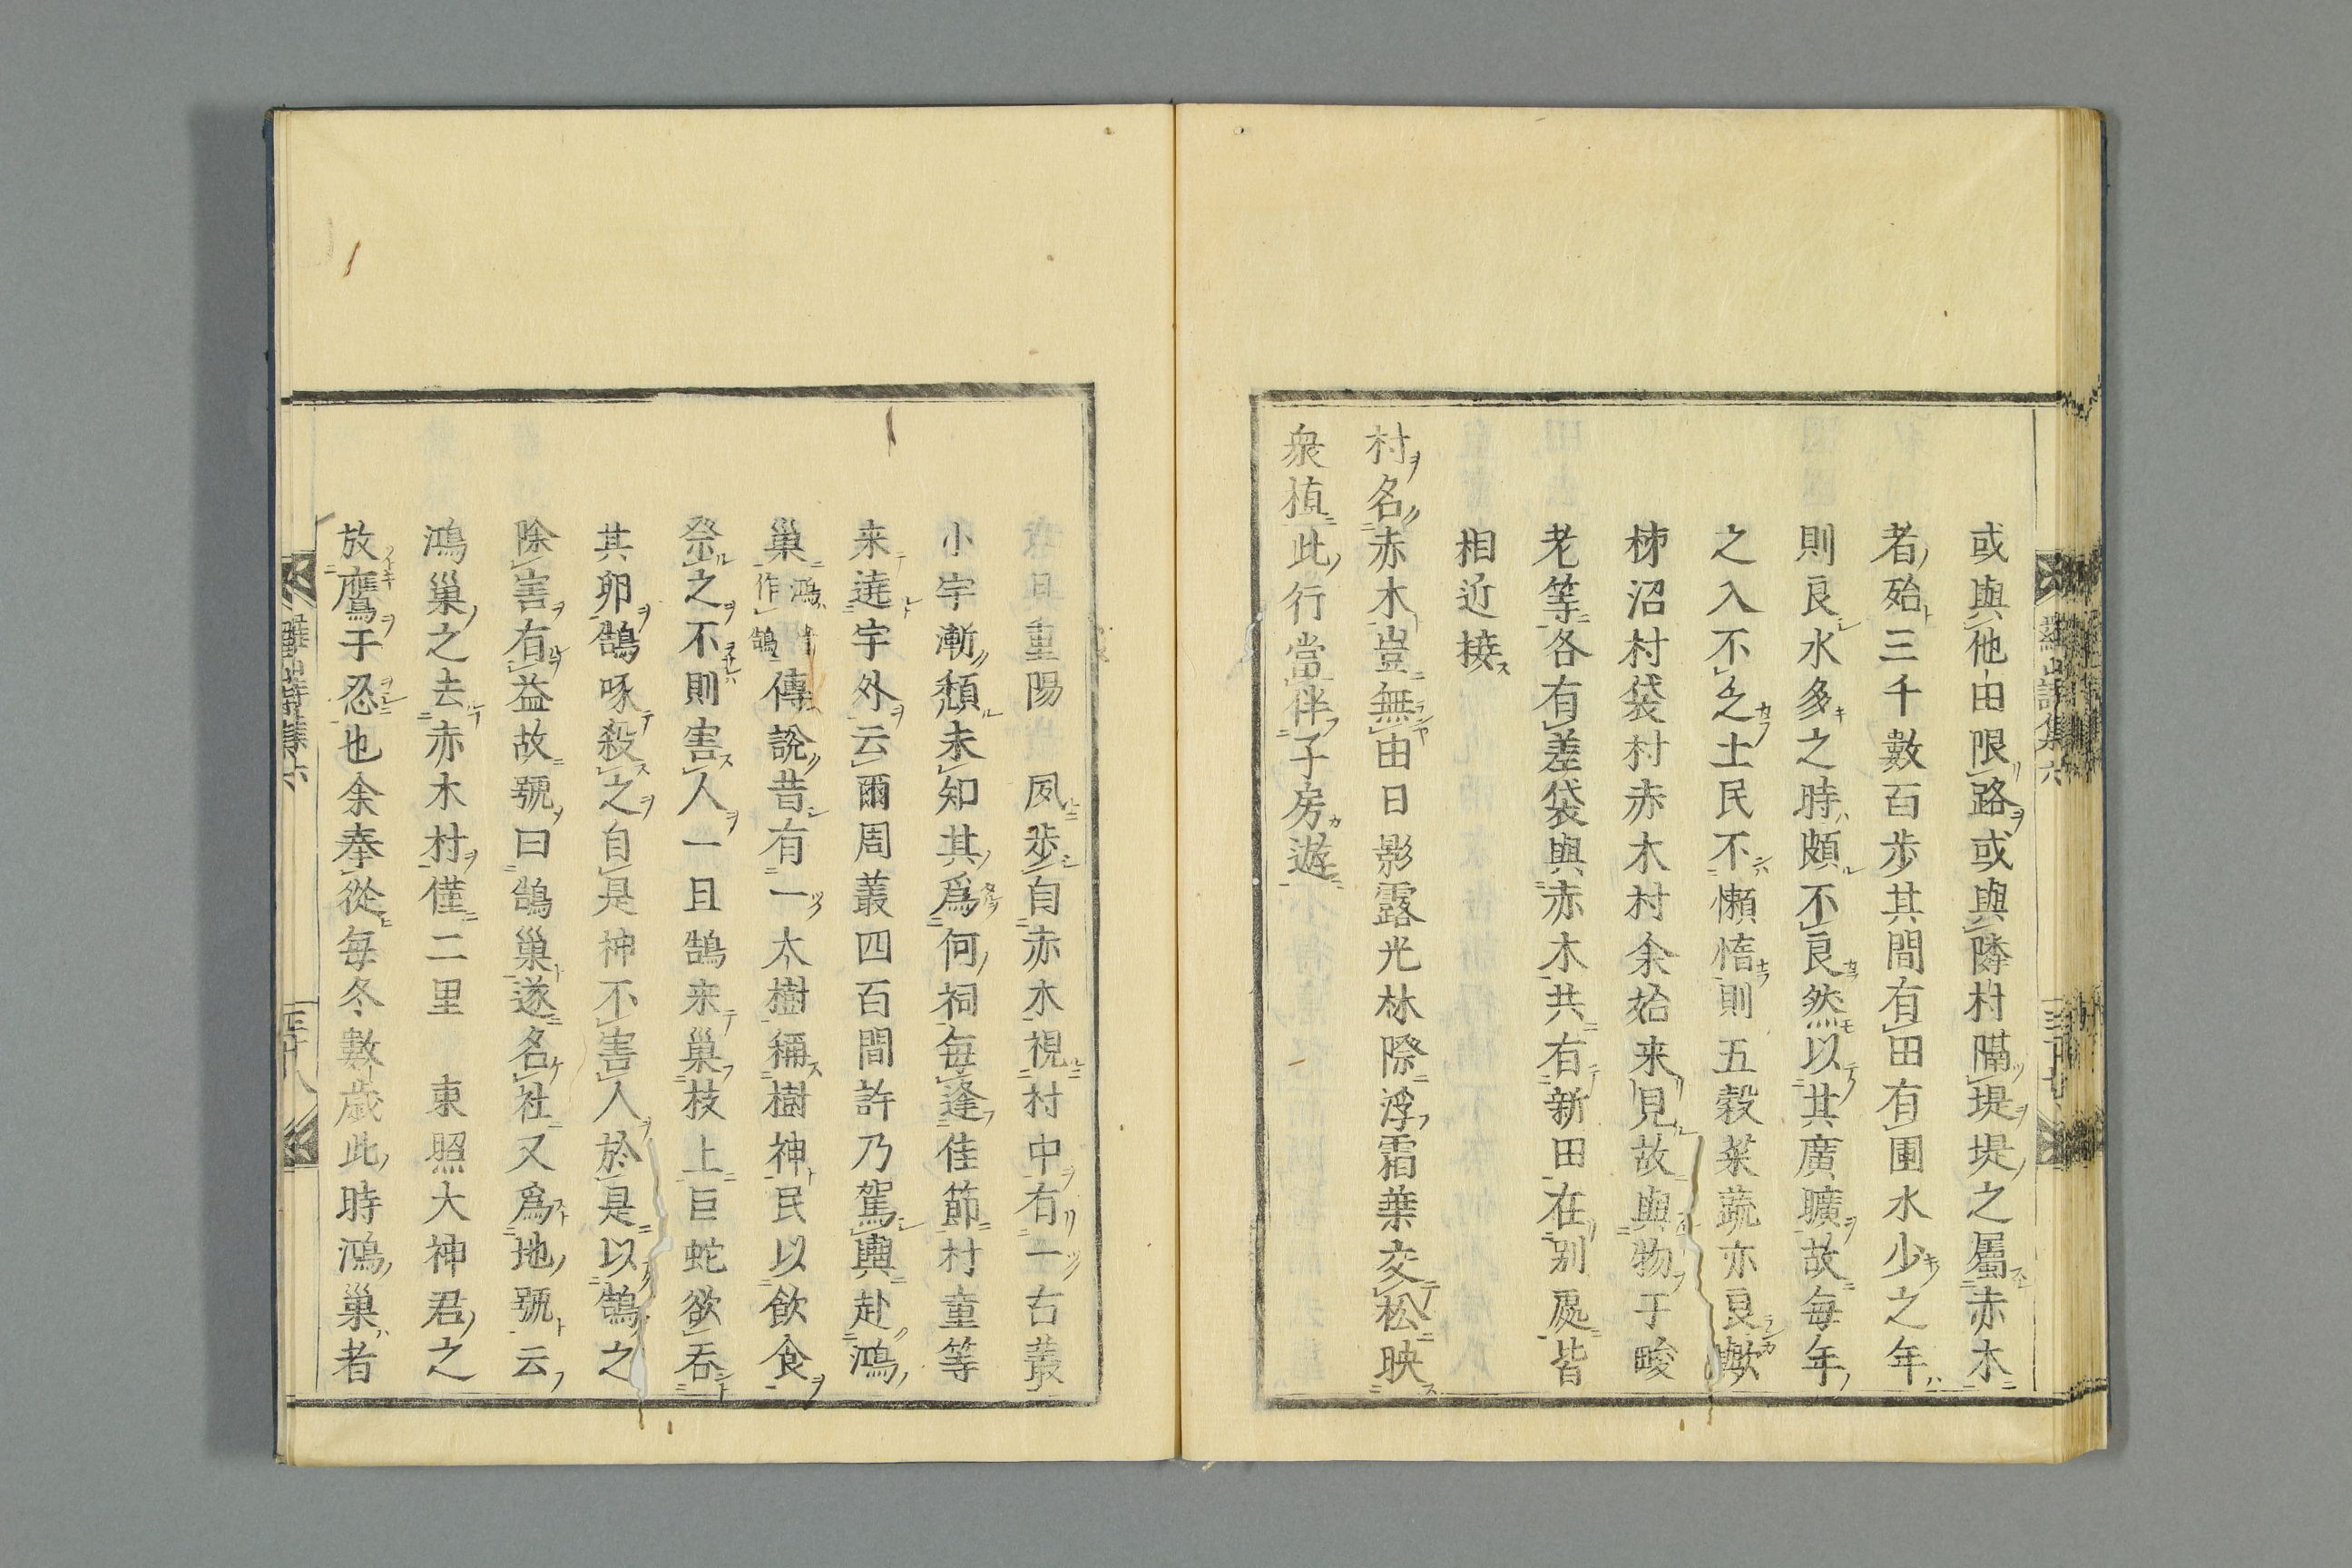 或與他田限路或與隣村隔堤堤之屬赤木
者殆三千數百步其間有田有圃水少之年
則良水多之時頗不良然以其廣曠故每年
之入不乏土民不懶惰則五穀菜蔬亦良歟
柹沼村袋村赤木村余始来見故與物于畯
老等各有差袋與赤木共有新田在別處皆
相近接
村名赤木豈無由日影露光林際浮霜葉交松映
衆植此行當伴子房遊
重陽 夙步自赤木視村中有一古叢
小宇漸頽未知其爲何祠每逢佳節村童等
来遶宇外云爾周叢四百間許乃駕輿赴鴻
巢鴻作鵠傳說昔有一大樹稱樹神民以飲食
祭之不則害人一旦鵠来巢枝上巨蛇欲吞
其卵鵠啄殺之自是神不害人於是以鵠之
除害有益故號曰鵠巢遂名社又爲地號云
鴻巢之去赤木村僅二里 東照大神君之
放鷹于忍也余奉從每冬數歲此時鴻巢者
羅山詩集六